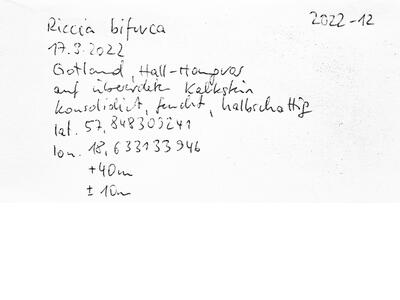 2022-12
Riccia bifurca
17.9.2022
Gotland, Hall-Hangvar
auf übererdetem Kalkstein
konsolidiert, feucht, halbschattig
lat. 57,848309241
lon. 18,633133946
+40m
± 10m